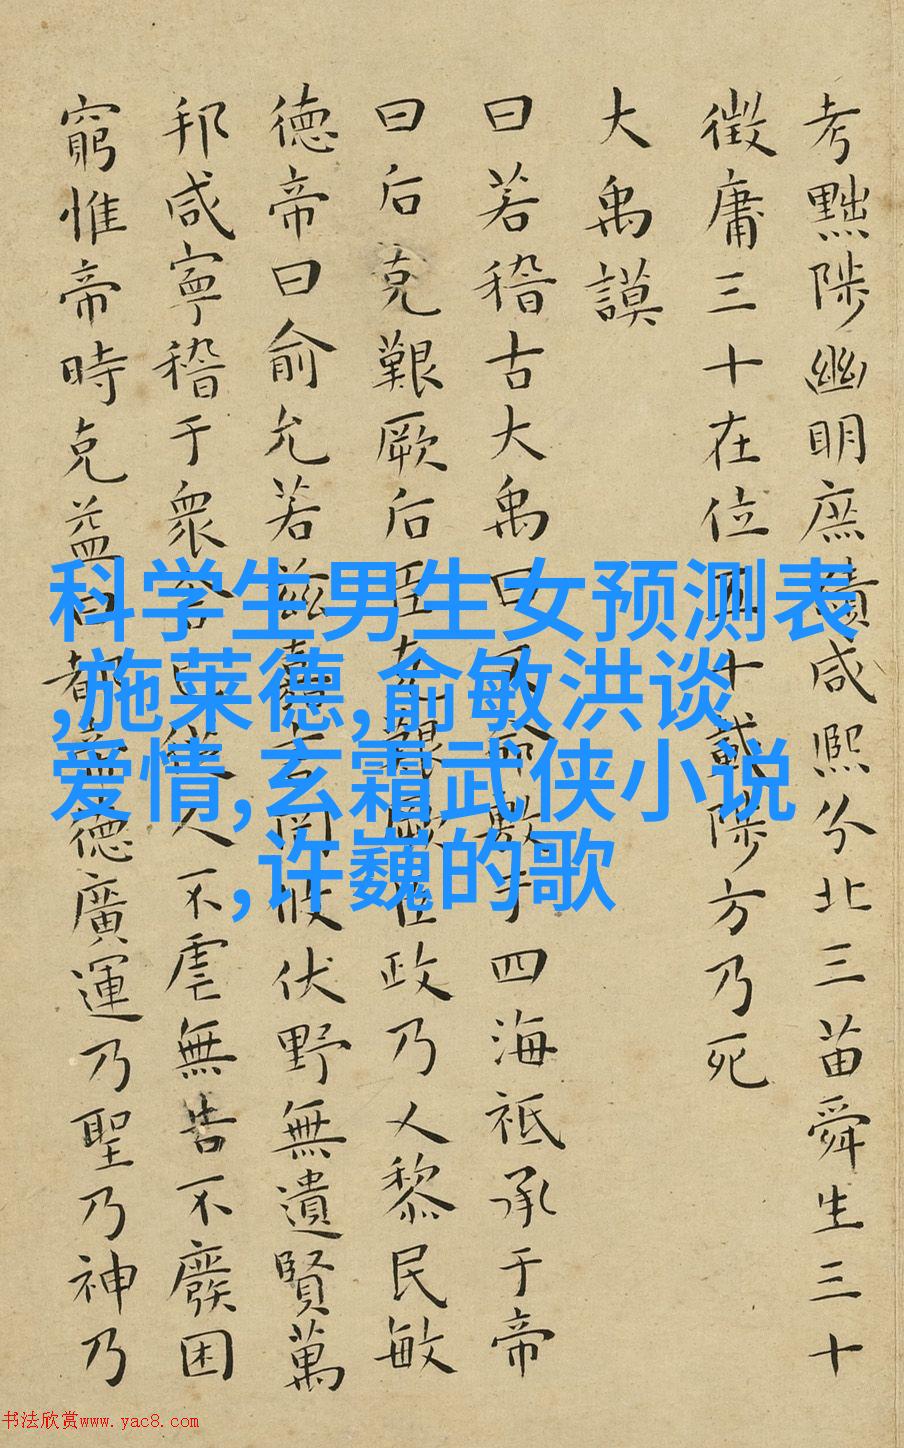 考黜陟幽明庶績咸熙分北三苗舜生三十
徵庸三十在位五十載陟方乃死
大禹謨
曰若稽古大禹曰文命敷于四海祗承于帝
曰后克艱厥后臣克艱厥臣政乃乂黎民敏
德帝曰俞允若茲嘉言罔攸伏野無遺賢萬
邦咸寧稽于衆舍己從人不虐無告不廢困
窮惟帝時克益曰都帝德廣運乃聖乃神乃
科学生男生女预测表
,施莱德,俞敏洪谈
爱情,玄霜武侠小说
,许巍的歌
书法欣赏www.yac8.com